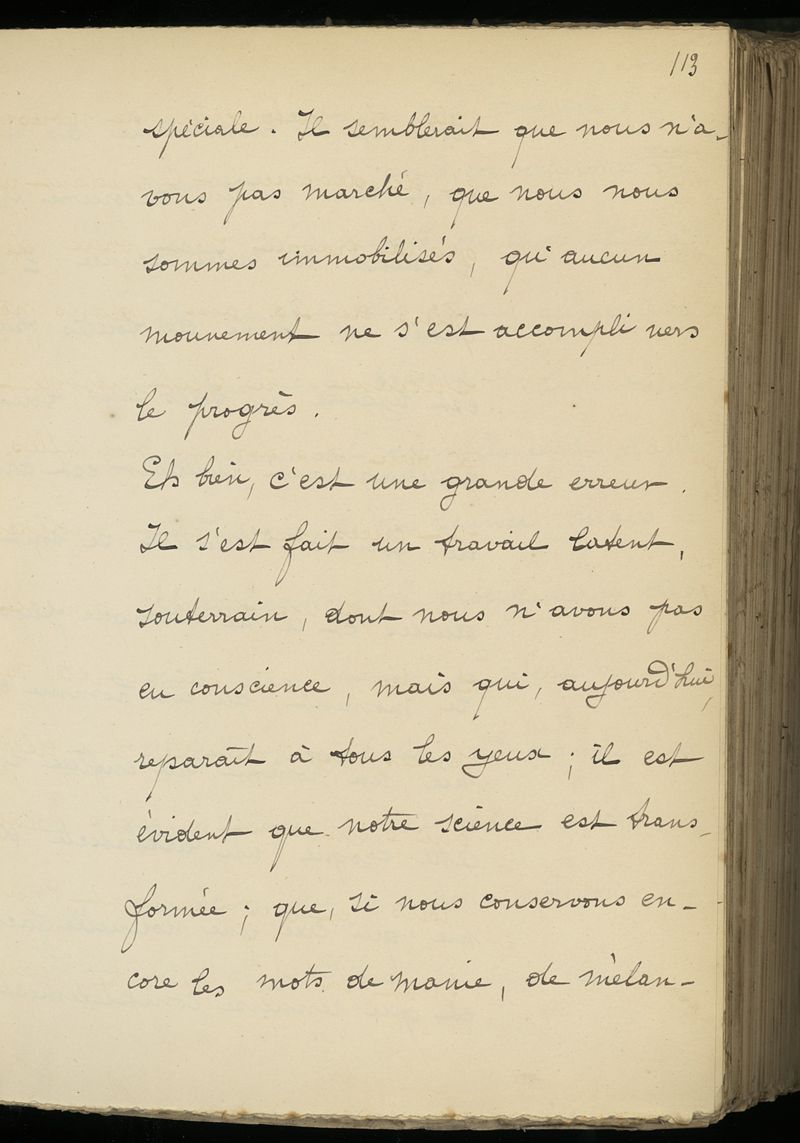 113
spéciale. Il semblerait que nous n'a-
vons pas marché, que nous nous
sommes immobilisés, qu'aucun
mouvement ne s'est accompli vers
le progrès.
Eh bien, c'est une grande erreur.
Il s'est fait un travail latent,
souterrain, dont nous n'avons pas
eu conscience, mais qui, aujourd'hui,
reparaît à tous les yeux ; il est
évident que notre science est trans-
formée ; que, si nous conservons en-
core les mots de manie, de mélan-